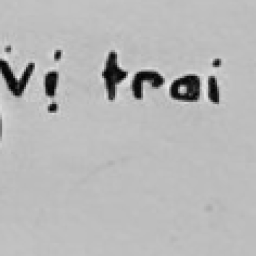 vị trai